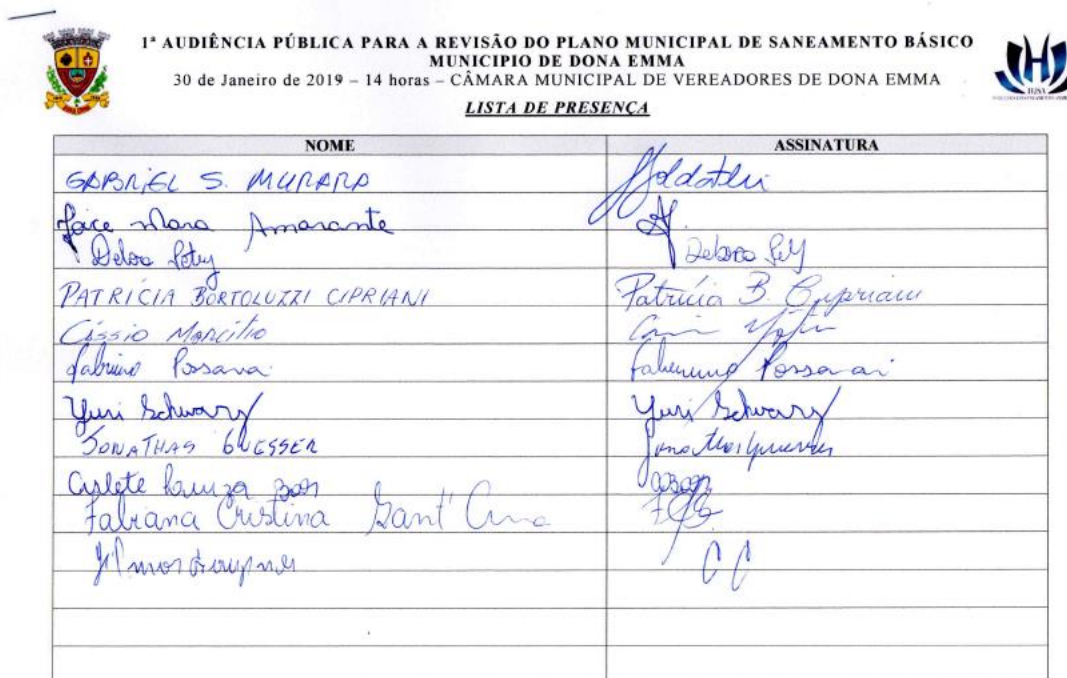 1ª AUDIÊNCIA PÚBLICA PARA A REVISÃO DO PLANO MUNICIPAL DE SANEAMENTO BÁSICO
MUNICIPIO DE DONA EMMA
30 de Janeiro de 2019 – 14 horas – CÂMARA MUNICIPAL DE VEREADORES DE DONA EMMA
LISTA DE PRESENÇA
NOME ASSINATURA
GABRIEL S. MURARA
Joice Mara Amarante
Debora Petry Debora
PATRÍCIA BORTOLUZZI CIPRIANI Patrícia B. Cipriani
CÁSSIO MARCÍLIO
Possava
Yuri Schwarz Yuri Schwarz
JONATHAS GUESSER
Arlete
Fabiana Cristina Sant'Ana